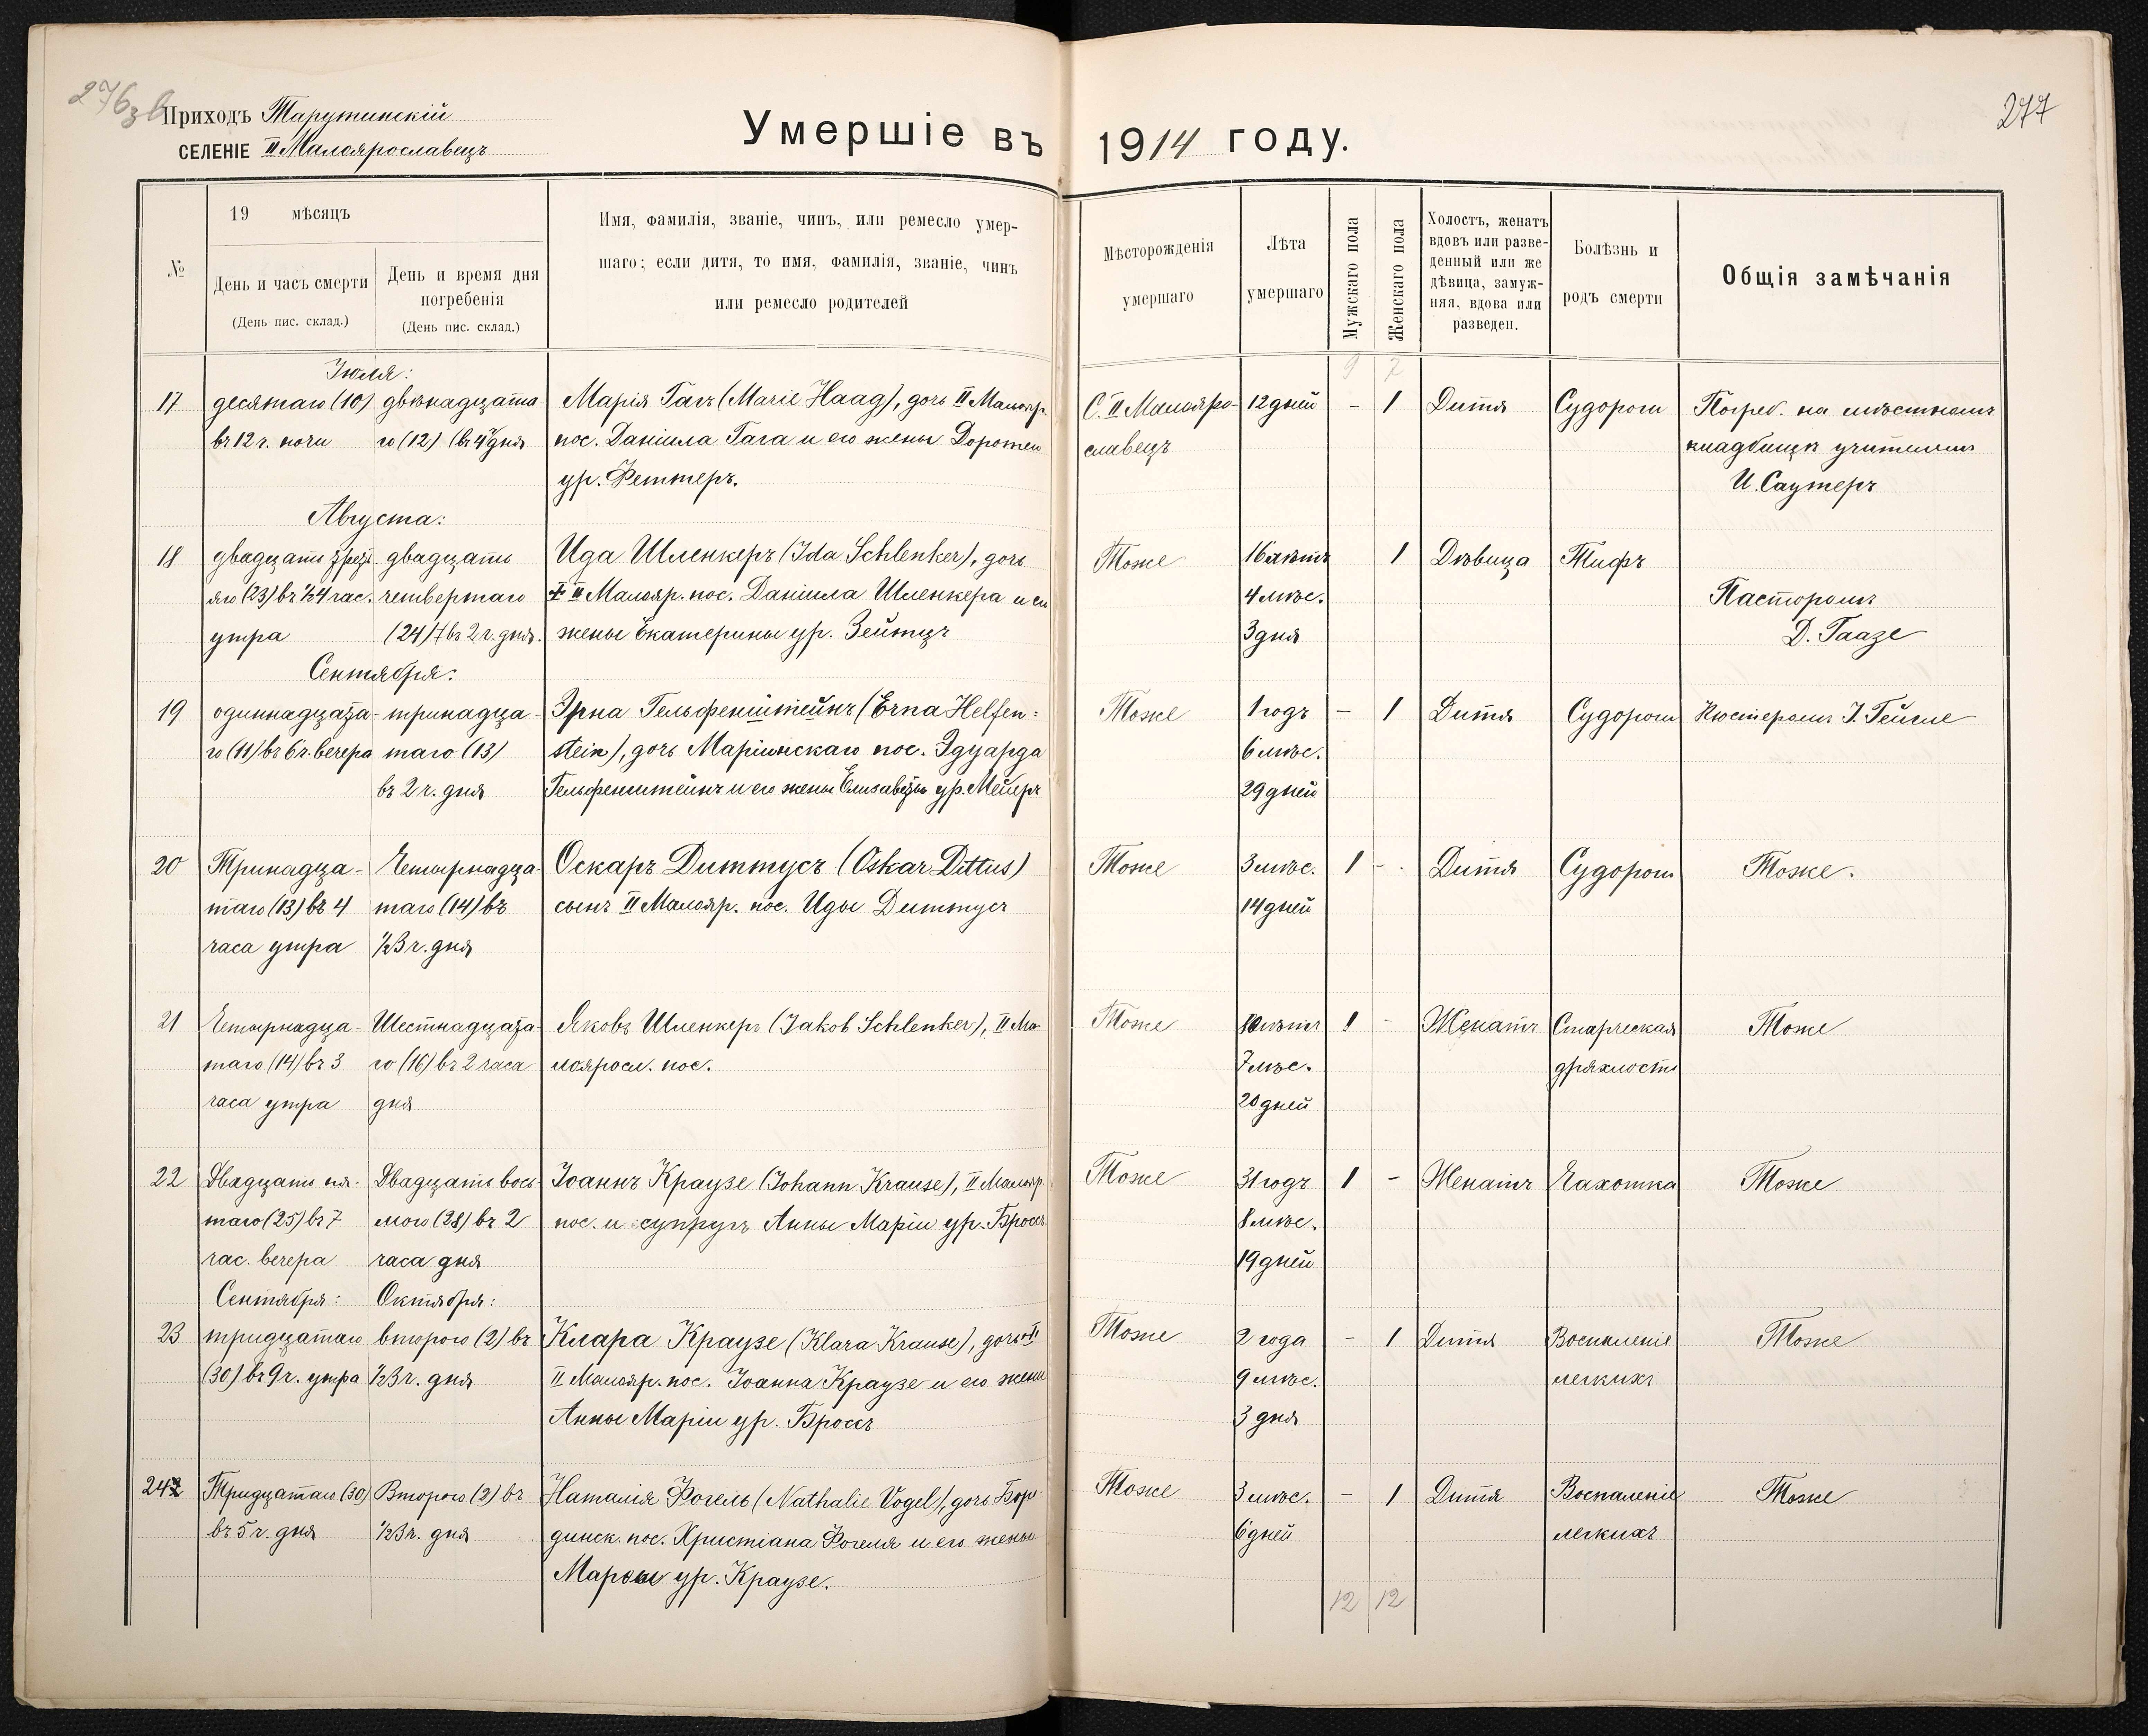 276 зв
277
Приходъ Тарутинскій
СЕЛЕНІЕ II Малоярославецъ
Умершіе въ 1914 году.
№
19 мѣсяцъ
День и часъ смерти
(День пис. склад.)
День и время дня
погребенія
(День пис. склад.)
Имя, фамилія, званіе, чинъ, или ремесло умер-
шаго; если дитя, то имя, фамилія, званіе, чинъ
или ремесло родителей
Мѣсторожденія
умершаго
Лѣта
умершаго
Мужскаго пола
Женскаго пола
Холостъ, женатъ
вдовъ или разве-
денный или же
дѣвица, замуж-
няя, вдова или
разведен.
Болѣзнь и
родъ смерти
Общія замѣчанія
9 7
Іюля:
17
десятаго (10)
въ 12 ч. ночи
двѣнадцата-
го (12) въ 4 ч. дня
Марія Гагъ (Marie Haag), дочь II Малояр.
пос. Даніила Гага и его жены Доротеи
ур. Феттеръ.
С. II Малояро-
славецъ
12 дней
– 1
Дитя
Судороги
Погреб. на мѣстномъ
кладбищѣ учителемъ
И. Саутеръ
Августа:
18
двадцать треть-
яго (23) въ ½4 час.
утра
двадцать
четвертаго
(24) въ 2 ч. дня.
Ида Шленкеръ (Ida Schlenker), дочь
II Малояр. пос. Даніила Шленкера и его
жены Екатерины ур. Зейтцъ
Тоже
16 лѣтъ
4 мѣс.
3 дня
1
Дѣвица
Тифъ
Пасторомъ
Д. Гаазе
Сентября:
19
одиннадцата-
го (11) въ 6 ч. вечера
тринадца-
таго (13)
въ 2 ч. дня
Эрна Гельфенштейнъ (Erna Helfen=
stein), дочь Маріинскаго пос. Эдуарда
Гельфенштейнъ и его жены Елизаветы ур. Мейеръ
Тоже
1 годъ
6 мѣс.
29 дней
– 1
Дитя
Судороги
Кюстеромъ І. Гейгле
20
Тринадца-
таго (13) въ 4
часа утра
Четырнадца-
таго (14) въ
½3 ч. дня
Оскаръ Диттусъ (Oskar Dittus)
сынъ II Малояр. пос. Иды Диттусъ
Тоже
3 мѣс.
14 дней
1 –
Дитя
Судороги
Тоже.
21
Четырнадца-
таго (14) въ 3
часа утра
Шестнадцата-
го (16) въ 2 часа
дня
Яковъ Шленкеръ (Jakob Schlenker), II Ма-
лояросл. пос.
Тоже
лѣтъ
7 мѣс.
20 дней
1 –
Женатъ
Старческая
дряхлость
Тоже
22
Двадцать пя-
таго (25) въ 7
час. вечера
Двадцать вось-
мого (28) въ 2
часа дня
Іоаннъ Краузе (Johann Krause), II Малояр.
пос. и супругъ Анны Маріи ур. Броссъ
Тоже
31 годъ
8 мѣс.
19 дней
1 –
Женатъ
Чахотка
Тоже
Сентября:
Октября:
23
тридцатаго
(30) въ 9 ч. утра
второго (2) въ
½3 ч. дня
Клара Краузе (Klara Krause), дочь II
II Малояр. пос. Іоанна Краузе и его жены
Анны Маріи ур. Броссъ
Тоже
2 года
9 мѣс.
3 дня
– 1
Дитя
Воспаленіе
легкихъ
Тоже
24
Тридцатаго (30)
въ 5 ч. дня
Второго (2) въ
½3 ч. дня
Наталія Фогель (Nathalie Vogel), дочь Боро-
динск. пос. Христіана Фогеля и его жены
ур. Краузе.
Тоже
3 мѣс.
6 дней
– 1
Дитя
Воспаленіе
легкихъ
Тоже
12 12